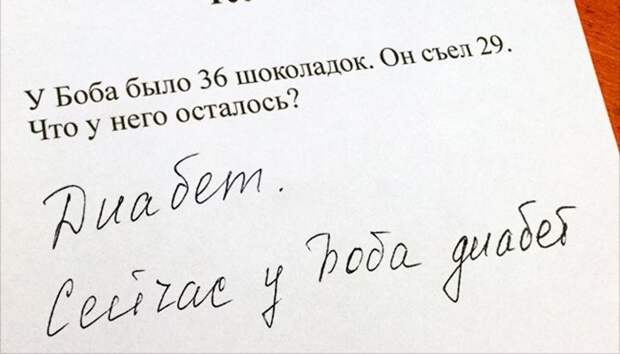 У Боба было 36 шоколадок. Он съел 29.
Что у него осталось?
Диабет.
Сейчас у Боба диабет